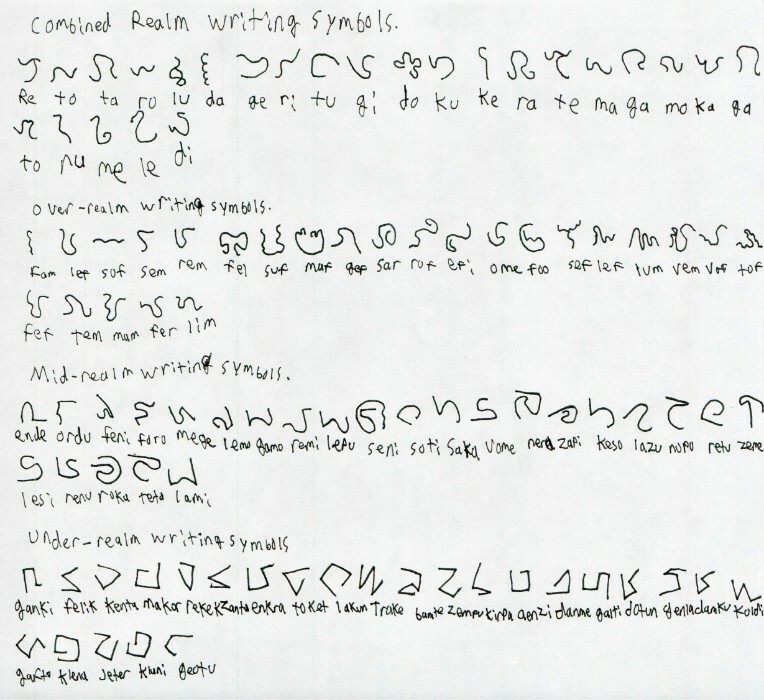 Combined Realm writing symbols.
Re to ta ro lu da ge ri tu gi do ku ke ra te ma ga mo ka ga
to nu me le di
Over-realm writing symbols.
Fam lef sof sem rem fel suf maf gef sar rof efi ome foo sef lef tum vem vof tof
fef tem mum fer lim
Mid-realm writing symbols.
ende ordu feni foro mege lemo gamo remi lefu seni soti Saka Vome nera zafi keso lazu nofo retu zene
lesi renu roka teta lami
Under-realm writing symbols
ganki felik kenta makor rekek zanta enkra toket lakun Trake bante zempu kirpa aenzi danne gaiti dotun genla danku koldi
gakto klena Jeter kluni geotu